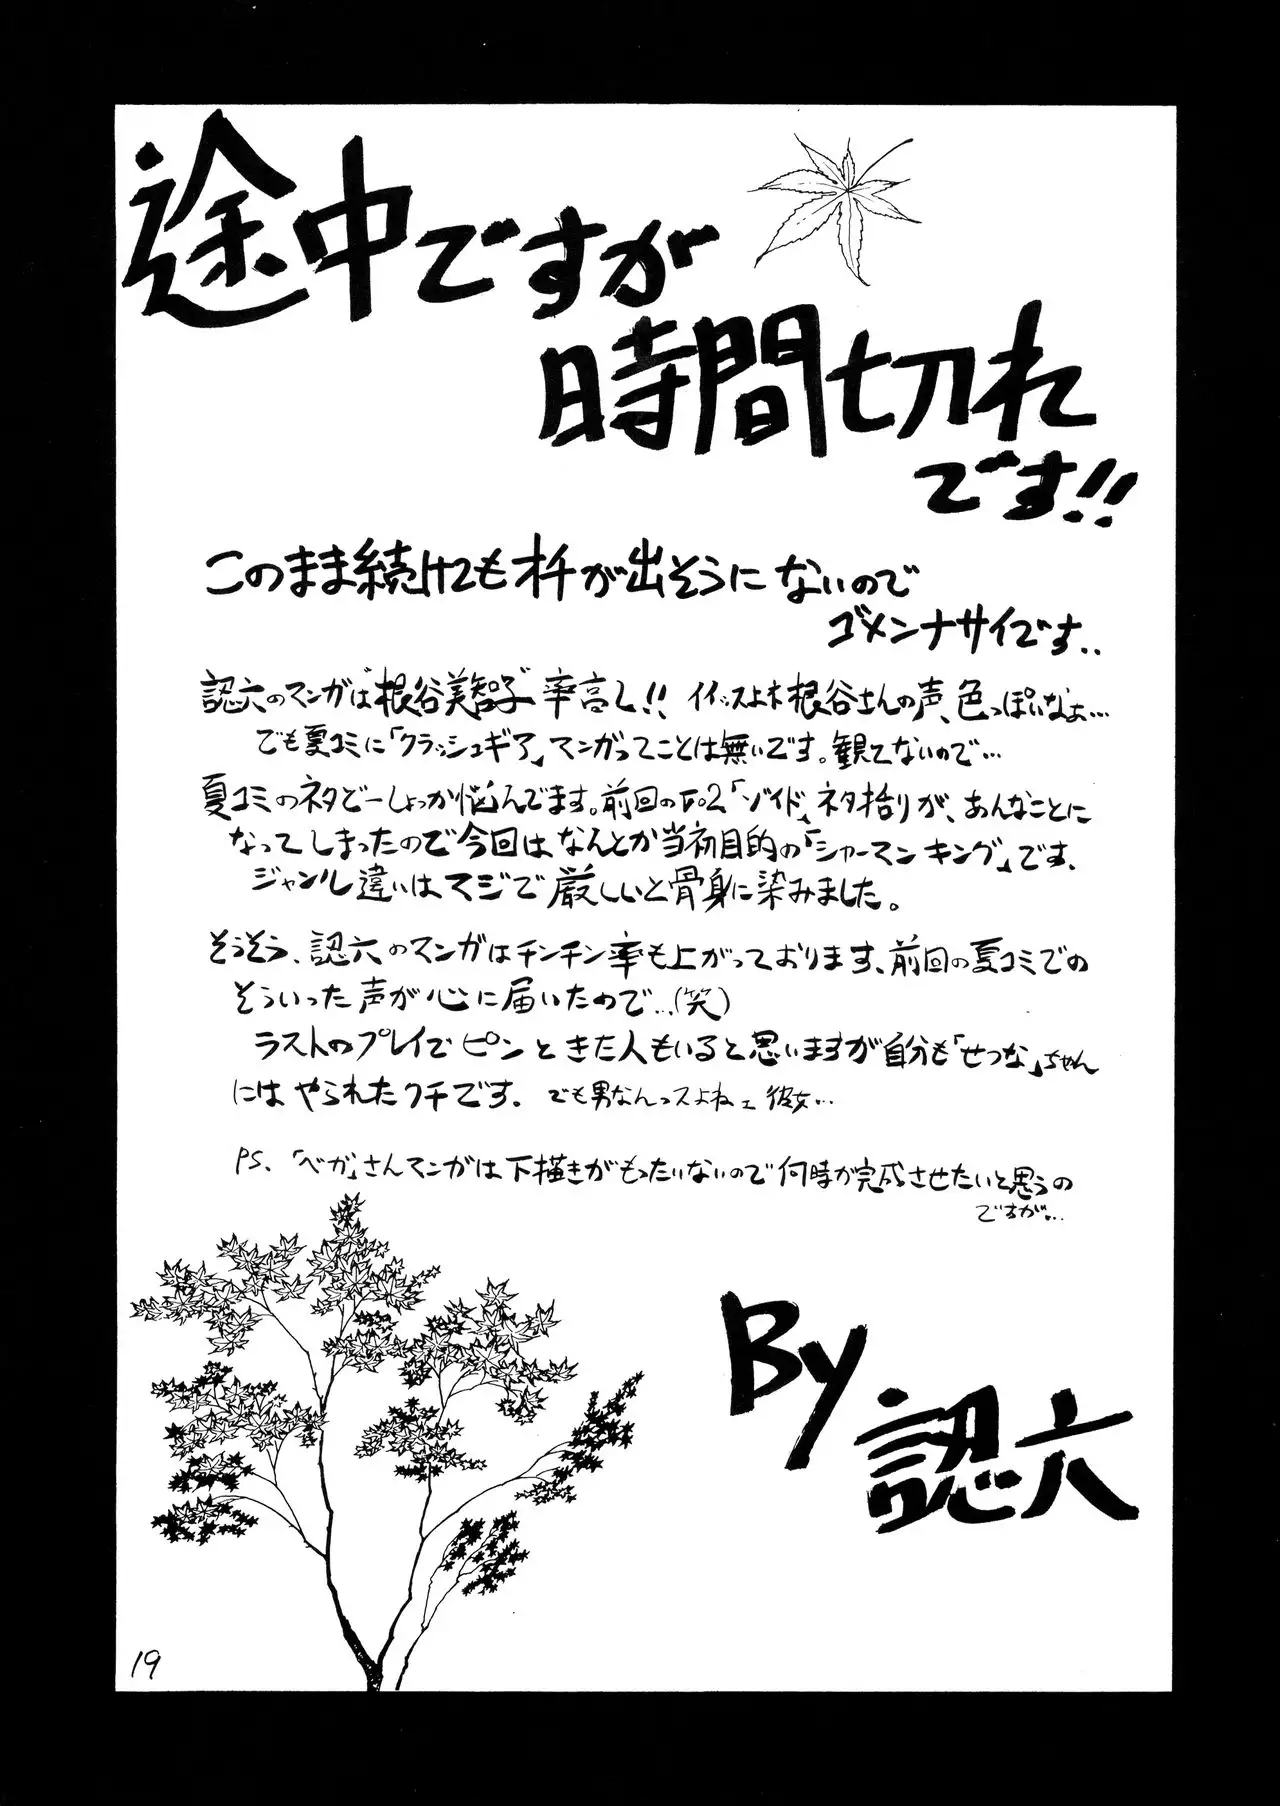 途中ですが
時間切れ
です!!
このまま続けてもオチが出そうにないので
ゴメンナサイです..
認六のマンガは"根谷美智子"率高し!! イイッスよネ根谷さんの声、色っぽいなぁ…
でも夏コミに「クラッシュギア」マンガってことは無いです。観てないので…
夏コミのネタどーしょっか悩んでます。前回のvo2「ゾイド」ネタ拾りが、あんなことに
なってしまったので今回はなんとか当初目的の「シャーマンキング」です、
ジャンル違いはマジで厳しいと骨身に染みました。
そうそう、認六のマンガはチンチン率も上がっております、前回の夏コミでの
そういった声が心に届いたので…(笑)
ラストのプレイでピンときた人もいると思いますが自分も「せつな」ちゃん
にはやられたクチです. でも男なんっスよね、彼女…
PS、「べガ」さんマンガは下描きがもったいないので何時か完成させたいと思うの
ですが…
By
認六
19